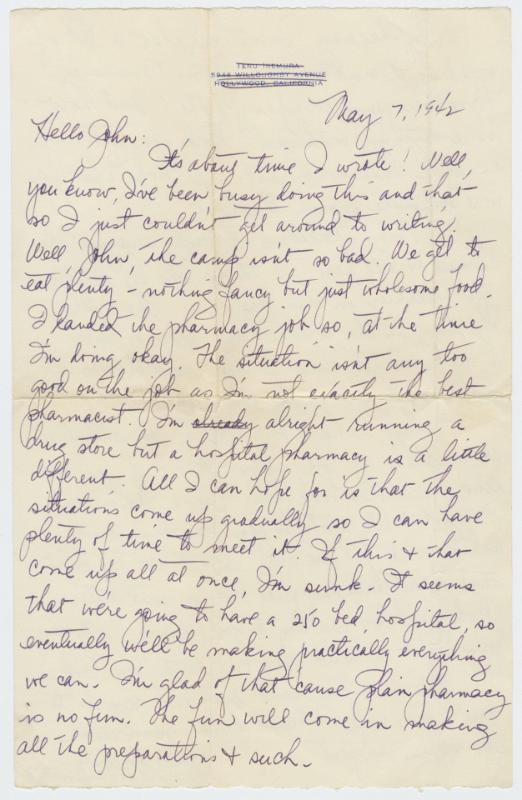 TERU IREMURA
5946 WILLOUGHBY AVENUE
HOLLYWOOD, CALIFORNIA
May 7, 1942
Hello John:
It's about time I wrote! Well,
you know, I've been busy doing this and that
so I just couldn't get around to writing.
Well, John, the camp isn't so bad. We get to
eat plenty - nothing fancy but just wholesome food.
I landed the pharmacy job so, at the time
I'm doing okay. The situation isn't any too
good on the job as I'm not exactly the best
pharmacist. I'm already alright running a
drug store but a hospital pharmacy is a little
different. All I can hope for is that the
situations come up gradually so I can have
plenty of time to meet it. If this & that
come up all at once, I'm sunk. It seems
that we're going to have a 250 bed hospital, so
eventually we'll be making practically everything
we can. I'm glad of that cause plain pharmacy
is no fun. The fun will come in making
all the preparations & such.